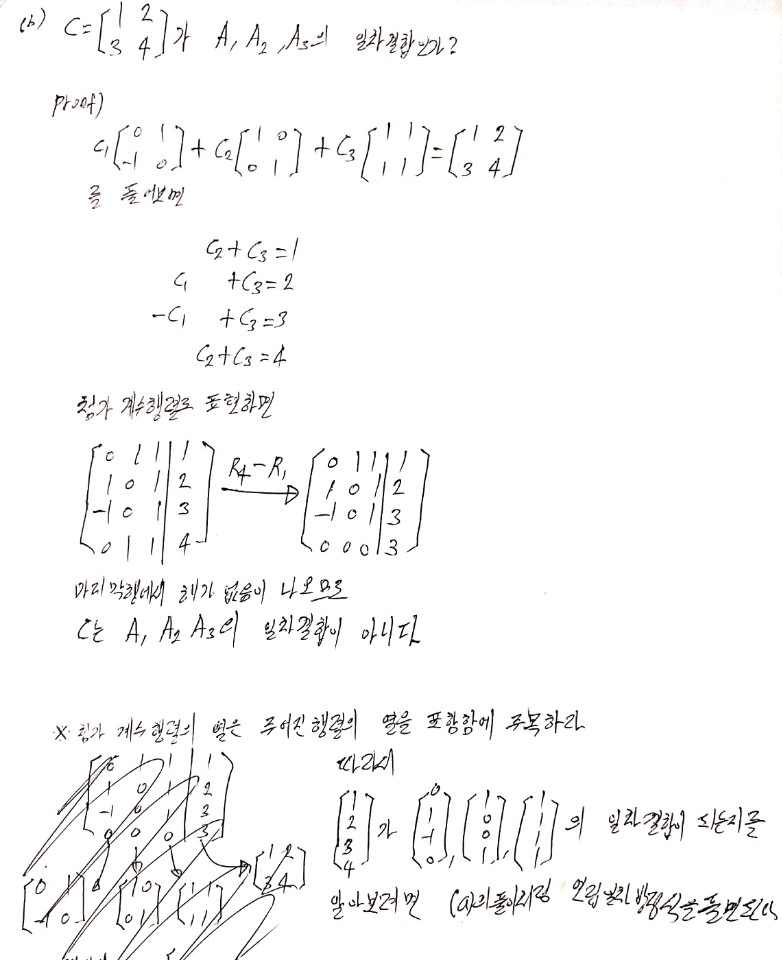 (b) C=[1 2 3 4]가 A₁ A₂, A₃의 일차결합인가?
proof)
C₁[0 1 -1 0]+C₂[1 0 0 1]+C₃[1 1 1 1]=[1 2 3 4]
를 풀어보면
C₂+C₃=1
C₁ +C₃=2
-C₁ +C₃=3
C₂+C₃=4
첨가 계수행렬로 표현하면
[0 1 1|1 R₄-R₁ [0 1 1|1
1 0 1|2 1 0 1|2
-1 0 1|3 → -1 0 1|3
0 1 1|4] 0 0 0|3]
마지막행에서 해가 없음이 나오므로
C는 A₁ A₂ A₃의 일차결합이 아니다
※ 첨가 계수행렬의 열은 주어진행렬의 열을 포함함에 주목하라
따라서
[1 2 3 4]가 [0 1 -1 0], [1 0 0 1], [1 1 1 1]의 일차결합이 되는지를
알아보려면 (a)의 풀이처럼 연립일차방정식을 풀면된다
[0 1 1|1
1 0 1|2
-1 0 1|3
0 0 0|3]
[0 1 -1 0] [1 0 0 1] [1 1 1 1] [1 2 3 4]